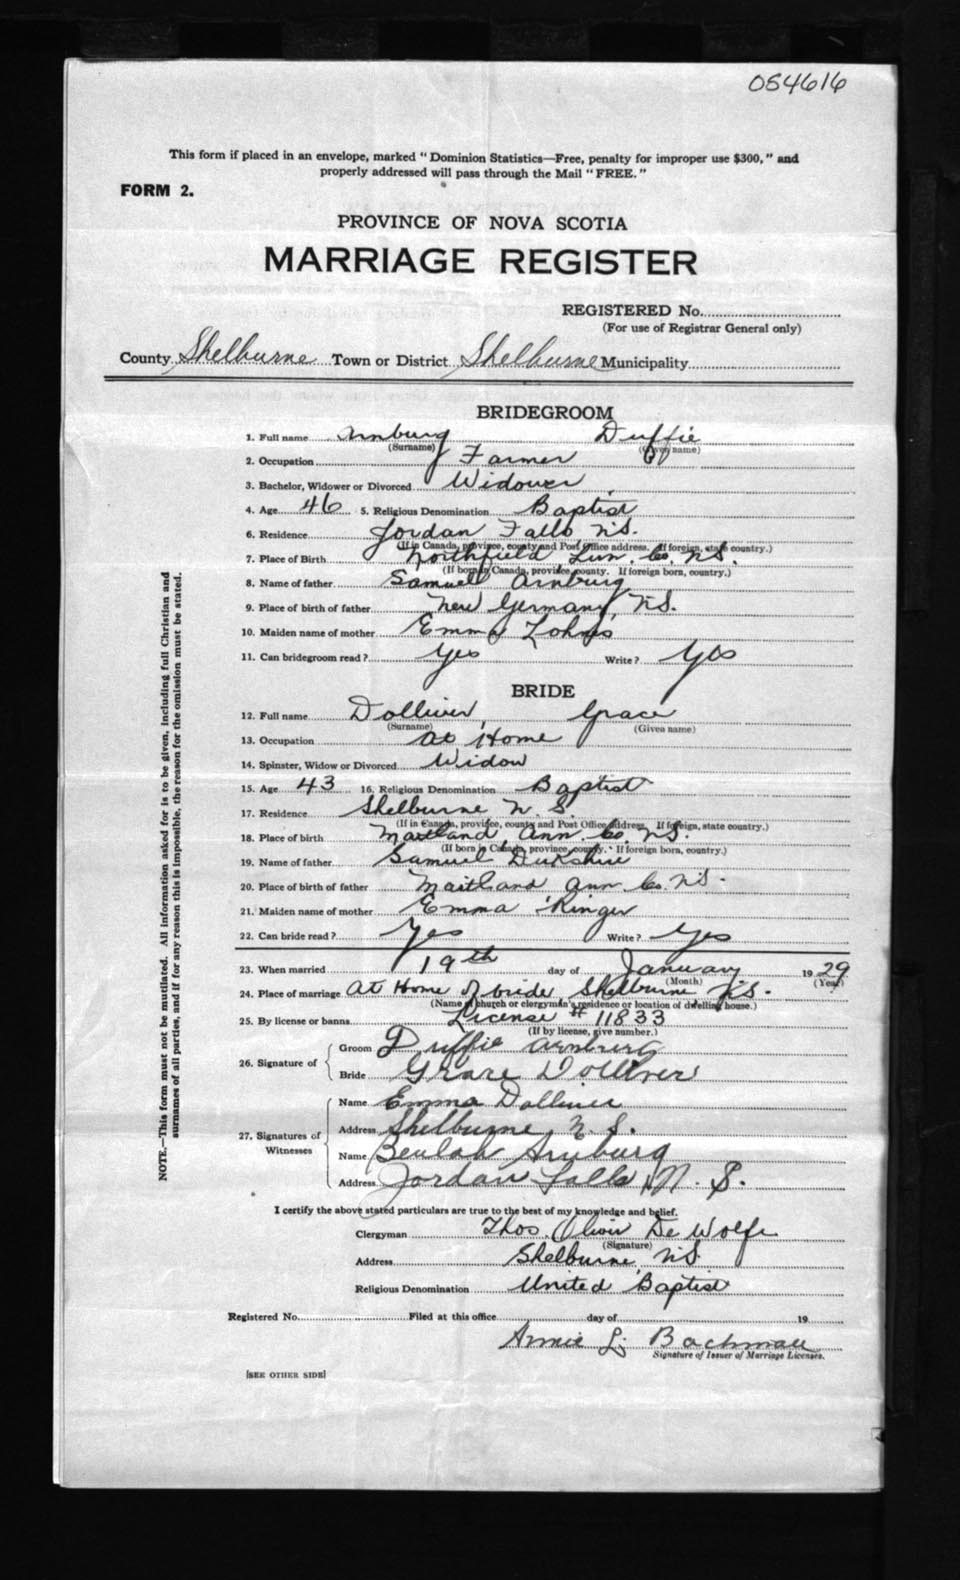 054616
This form if placed in an envelope, marked "Dominion Statistics—Free, penalty for improper use $300," and
properly addressed will pass through the Mail "FREE."
FORM 2.
PROVINCE OF NOVA SCOTIA
MARRIAGE REGISTER
REGISTERED No.
(For use of Registrar General only)
County Shelburne Town or District Shelburne Municipality
BRIDEGROOM
1. Full name Arnburg Duffie
(Surname) (Given name)
2. Occupation Farmer
3. Bachelor, Widower or Divorced Widower
4. Age 46 5. Religious Denomination Baptist
6. Residence Jordan Falls N.S.
(If in Canada, province, county and Post Office address. If foreign, state country.)
7. Place of Birth Northfield Lun. Co. N.S.
(If born in Canada, province, county. If foreign born, country.)
8. Name of father Samuel Arnburg
9. Place of birth of father New Germany, N.S.
10. Maiden name of mother Emma Lohnes
11. Can bridegroom read? Yes Write? Yes
BRIDE
12. Full name Dolliver, Grace
(Surname) (Given name)
13. Occupation At Home
14. Spinster, Widow or Divorced Widow
15. Age 43 16. Religious Denomination Baptist
17. Residence Shelburne N.S.
(If in Canada, province, county and Post Office address. If foreign, state country.)
18. Place of birth Maitland, Ann. Co. N.S.
(If born in Canada, province, county. If foreign born, country.)
19. Name of father Samuel
20. Place of birth of father Maitland Ann. Co. N.S.
21. Maiden name of mother Emma Ringer
22. Can bride read? Yes Write? Yes
23. When married 19th day of January 1929
(Month) (Year)
24. Place of marriage At Home of bride, Shelburne N.S.
(Name of church or clergyman's residence or location of dwelling house.)
25. By license or banns License # 11833
(If by license, give number.)
26. Signature of Groom Duffie Arnberg
Bride Grace Dolliver
27. Signatures of Witnesses Name Emma Dolliver
Address Shelburne, N.S.
Name Beulah Arnburg
Address Jordan Falls, N.S.
I certify the above stated particulars are true to the best of my knowledge and belief.
Clergyman Thos. Oliver De Wolfe
(Signature)
Address Shelburne, N.S.
Religious Denomination United Baptist
Registered No. Filed at this office day of 19
Annie L. Bachman
Signature of Issuer of Marriage Licenses.
[SEE OTHER SIDE]
NOTE.—This form must not be mutilated. All information asked for is to be given, including full Christian and
surnames of all parties, and if for any reason this is impossible, the reason for the omission must be stated.